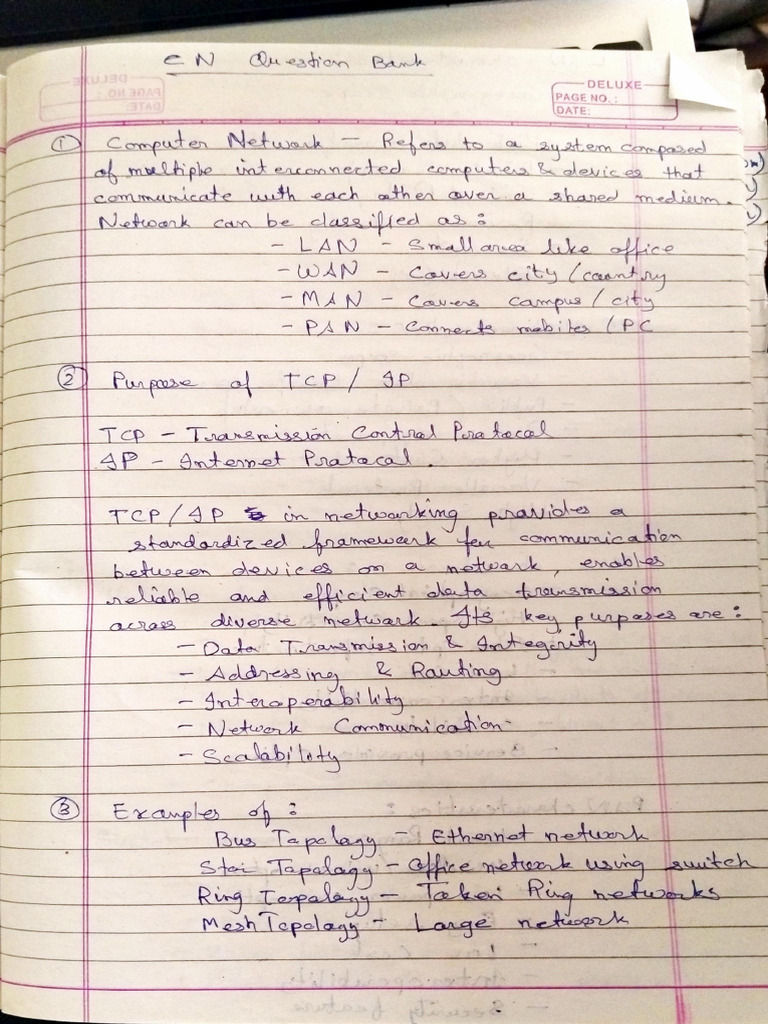 CN Question Bank
DELUXE
PAGE NO.:
DATE:
① Computer Network – Refers to a system composed
of multiple interconnected computers & devices that
communicate with each other over a shared medium.
Network can be classified as :
- LAN - Small area like office
- WAN - Covers city / country
- MAN - Covers campus / city
- PAN - Connects mobiles / PC
② Purpose of TCP / IP
TCP – Transmission Control Protocol
IP – Internet Protocol.
TCP / IP in networking provides a
standardized framework for communication
between devices on a network, enables
reliable and efficient data transmission
across diverse network. Its key purposes are :
- Data Transmission & Integrity
- Addressing & Routing
- Interoperability
- Network Communication
- Scalability
③ Examples of :
Bus Topology – Ethernet network
Star Topology – Office network using switch
Ring Topology – Token Ring networks
Mesh Topology – Large network